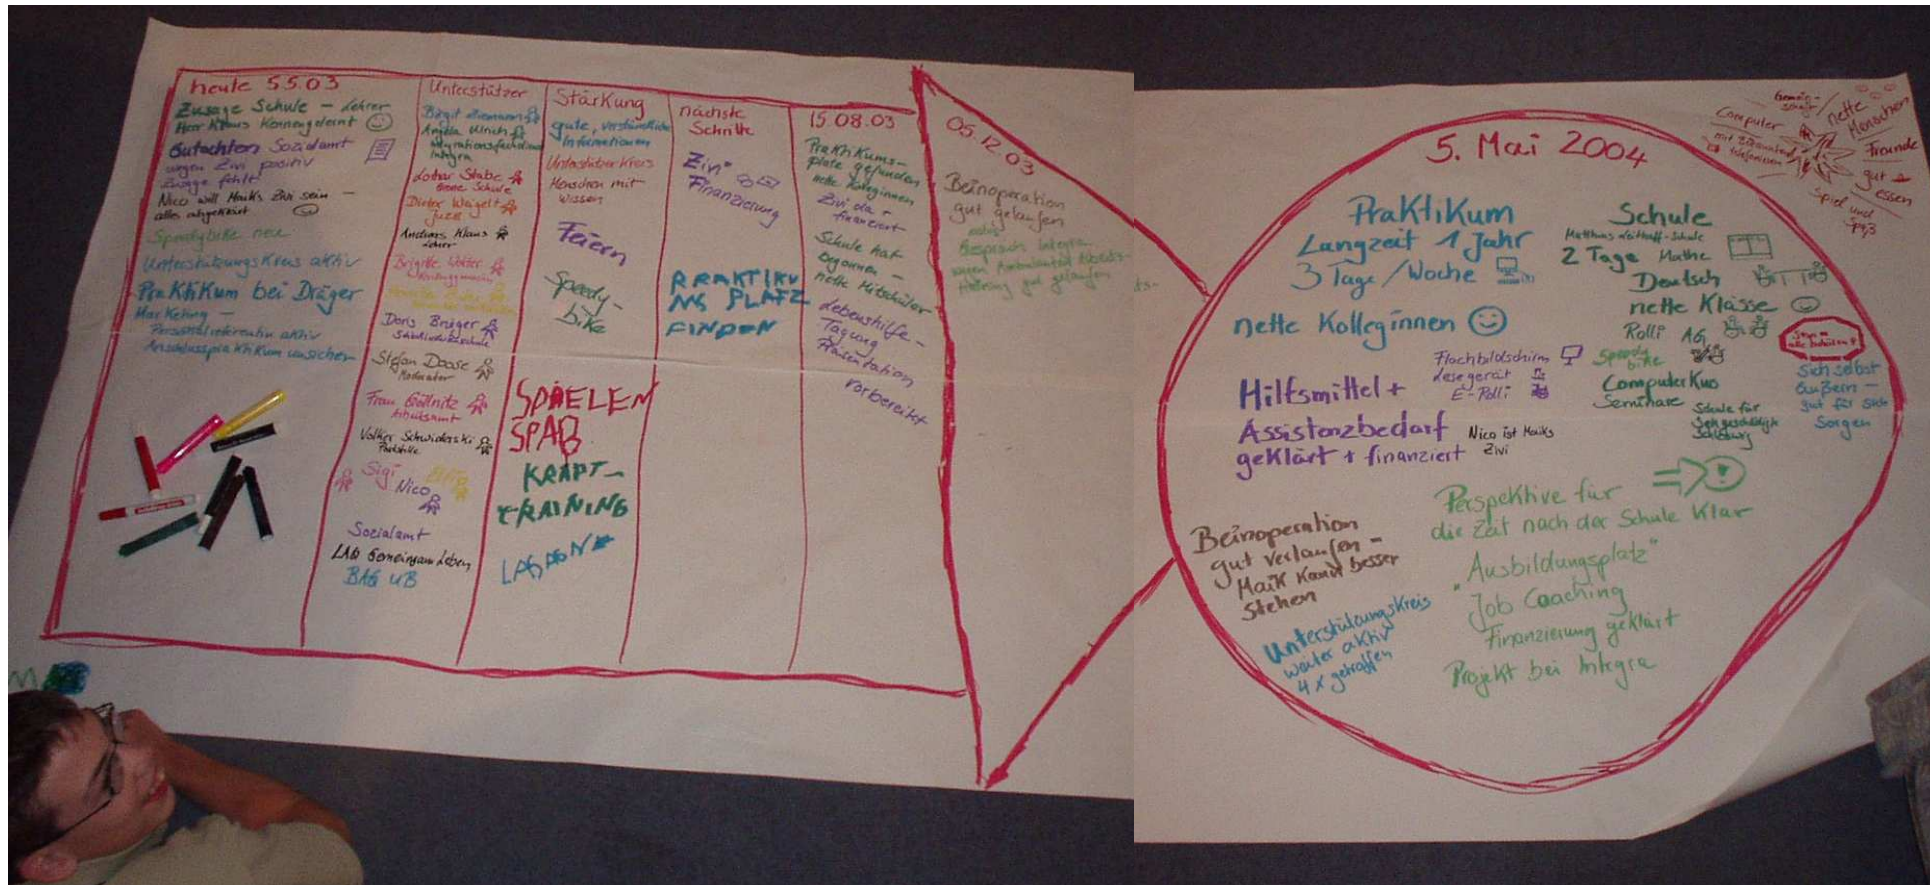 heute 5.5.03
Zusage Schule – Lehrer
Herr Klaus kennengelernt
Gutachten Sozialamt
wegen Zivi positiv
Zusage fehlt!
Nico will Maiks Zivi sein –
alles abgeklärt
Speedybike neu
Unterstützungskreis aktiv
Praktikum bei Dräger
Marketing –
Personalreferentin aktiv
Anschlusspraktikum unsicher
Unterstützer
Birgit
Angela Ulrich
Integrationsfachdienst
Integra
Lothar Stabe
Schule
Dieter Weigelt
Andreas Klaus
Lehrer
Brigitte
Doris Brüger
Stefan Doose
Moderator
Frau Göllnitz
Arbeitsamt
Volker Schwiderski
Sigi
Nico
Sozialamt
LAG Gemeinsam Leben
BAG UB
Stärkung
gute, verständliche
Informationen
Unterstützerkreis
Menschen mit
Wissen
Feiern
Speedy-
bike
SPIELEN
SPAß
KRAFT-
TRAINING
nächste
Schritte
Zivi
Finanzierung
PRAKTIKU
MS PLATZ
FINDEN
15.08.03
Praktikums-
platz gefunden
nette Kolleginnen
Zivi da –
finanziert
Schule hat
begonnen –
nette Mitschüler
Lebenshilfe-
Tagung
Präsentation
vorbereitet
05.12.03
Beinoperation
gut gelaufen
Gespräch Integra
wegen Ambulanter Arbeits-
gut gelaufen
5. Mai 2004
Praktikum
Langzeit 1 Jahr
3 Tage/Woche
nette Kolleginnen
Hilfsmittel +
Assistenzbedarf
geklärt + finanziert
Flachbildschirm
Lesegerät
E-Rolli
Nico ist Maiks
Zivi
Schule
2 Tage Mathe
Deutsch
nette Klasse
Rolli AG
Speedy
bike
Computer Kurs
Seminare
Schule für
Sehgeschädigte
Schleswig
Sich selbst
äußern –
gut für sich
sorgen
Beinoperation
gut verlaufen –
Maik kann besser
stehen
Unterstützungskreis
weiter aktiv
4 x getroffen
Perspektive für
die Zeit nach der Schule klar
"Ausbildungsplatz"
"Job Coaching
Finanzierung geklärt
Projekt bei Integra
Gemein-
schaft
nette
Menschen
Computer
Freunde
gut
essen
Spiel und
Spaß